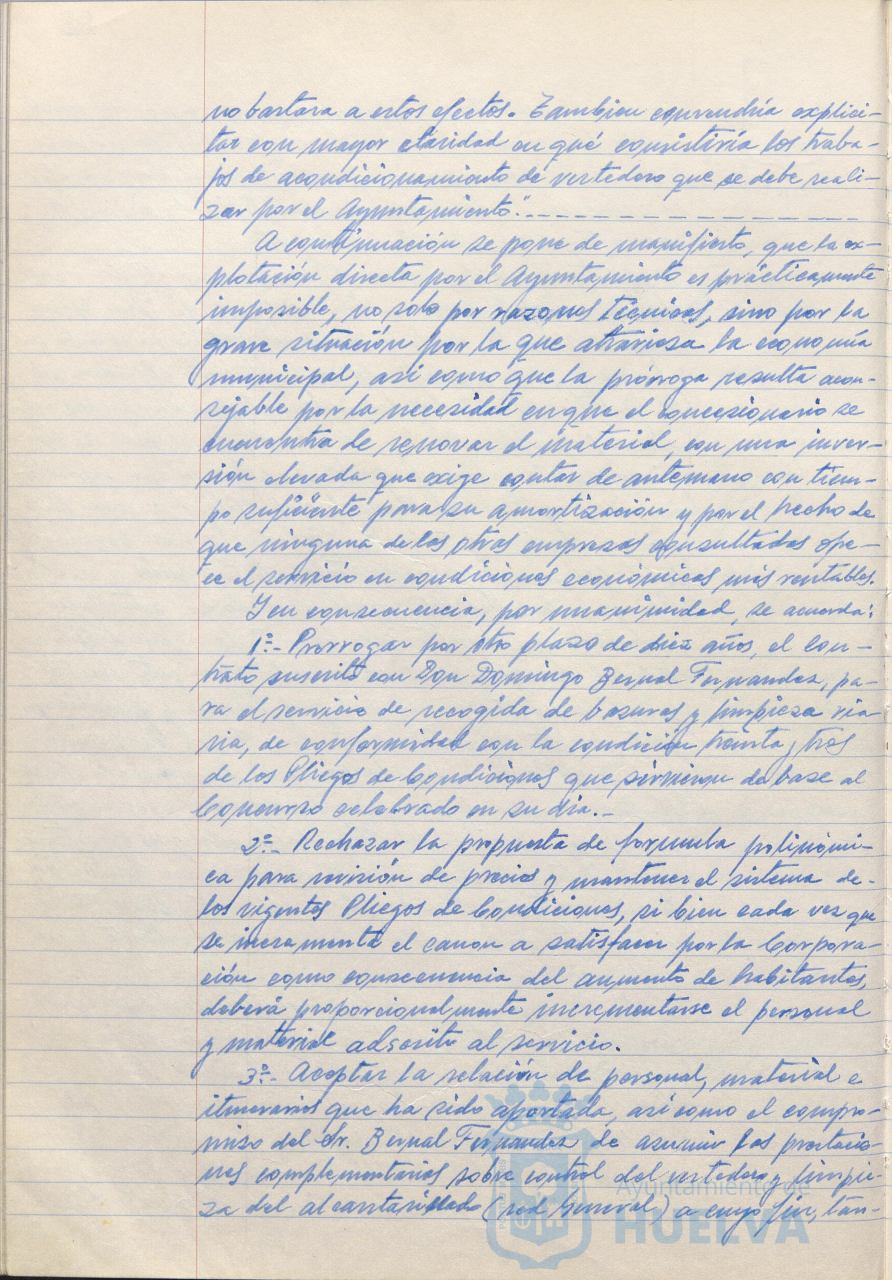 no bastara a estos efectos. Tambien convendría explici-
tar con mayor claridad en qué consistiría los traba-
jos de acondicionamiento de vertedero que se debe reali-
zar por el Ayuntamiento".
A continuación se pone de manifiesto, que la ex-
plotación directa por el Ayuntamiento es prácticamente
imposible, no solo por razones técnicas, sino por la
grave situación por la que atraviesa la economía
municipal, así como que la prórroga resulta acon-
sejable por la necesidad en que el concesionario se
encuentra de renovar el material, con una inver-
sión elevada que exige contar de antemano con tiem-
po suficiente para su amortización y por el hecho de
que ninguna de las otras empresas consultadas ofre-
ce el servicio en condiciones económicas más rentables.
Y en consecuencia, por unanimidad, se acuerda:
1º.- Prorrogar por otro plazo de diez años, el Con-
trato suscrito con Don Domingo Bernal Fernandez, pa-
ra el servicio de recogida de basuras y limpieza via-
ria, de conformidad con la condición treinta y tres
de los Pliegos de Condiciones que sirvieron de base al
Concurso celebrado en su día.-
2º.- Rechazar la propuesta de formula polinómi-
ca para revisión de precios y mantener el sistema de
los vigentes Pliegos de Condiciones, si bien cada vez que
se incremente el canon a satisfacer por la Corpora-
ción como consecuencia del aumento de habitantes,
deberá proporcionalmente incrementarse el personal
y material adscrito al servicio.
3º.- Aceptar la relación de personal, material e
itinerarios que ha sido aportada, así como el compro-
miso del Sr. Bernal Fernandez de asumir las prestacio-
nes complementarias sobre control del vertedero y limpie-
za del alcantarillado (red General) a cuyo fin, tan-
Ayuntamiento de
HUELVA